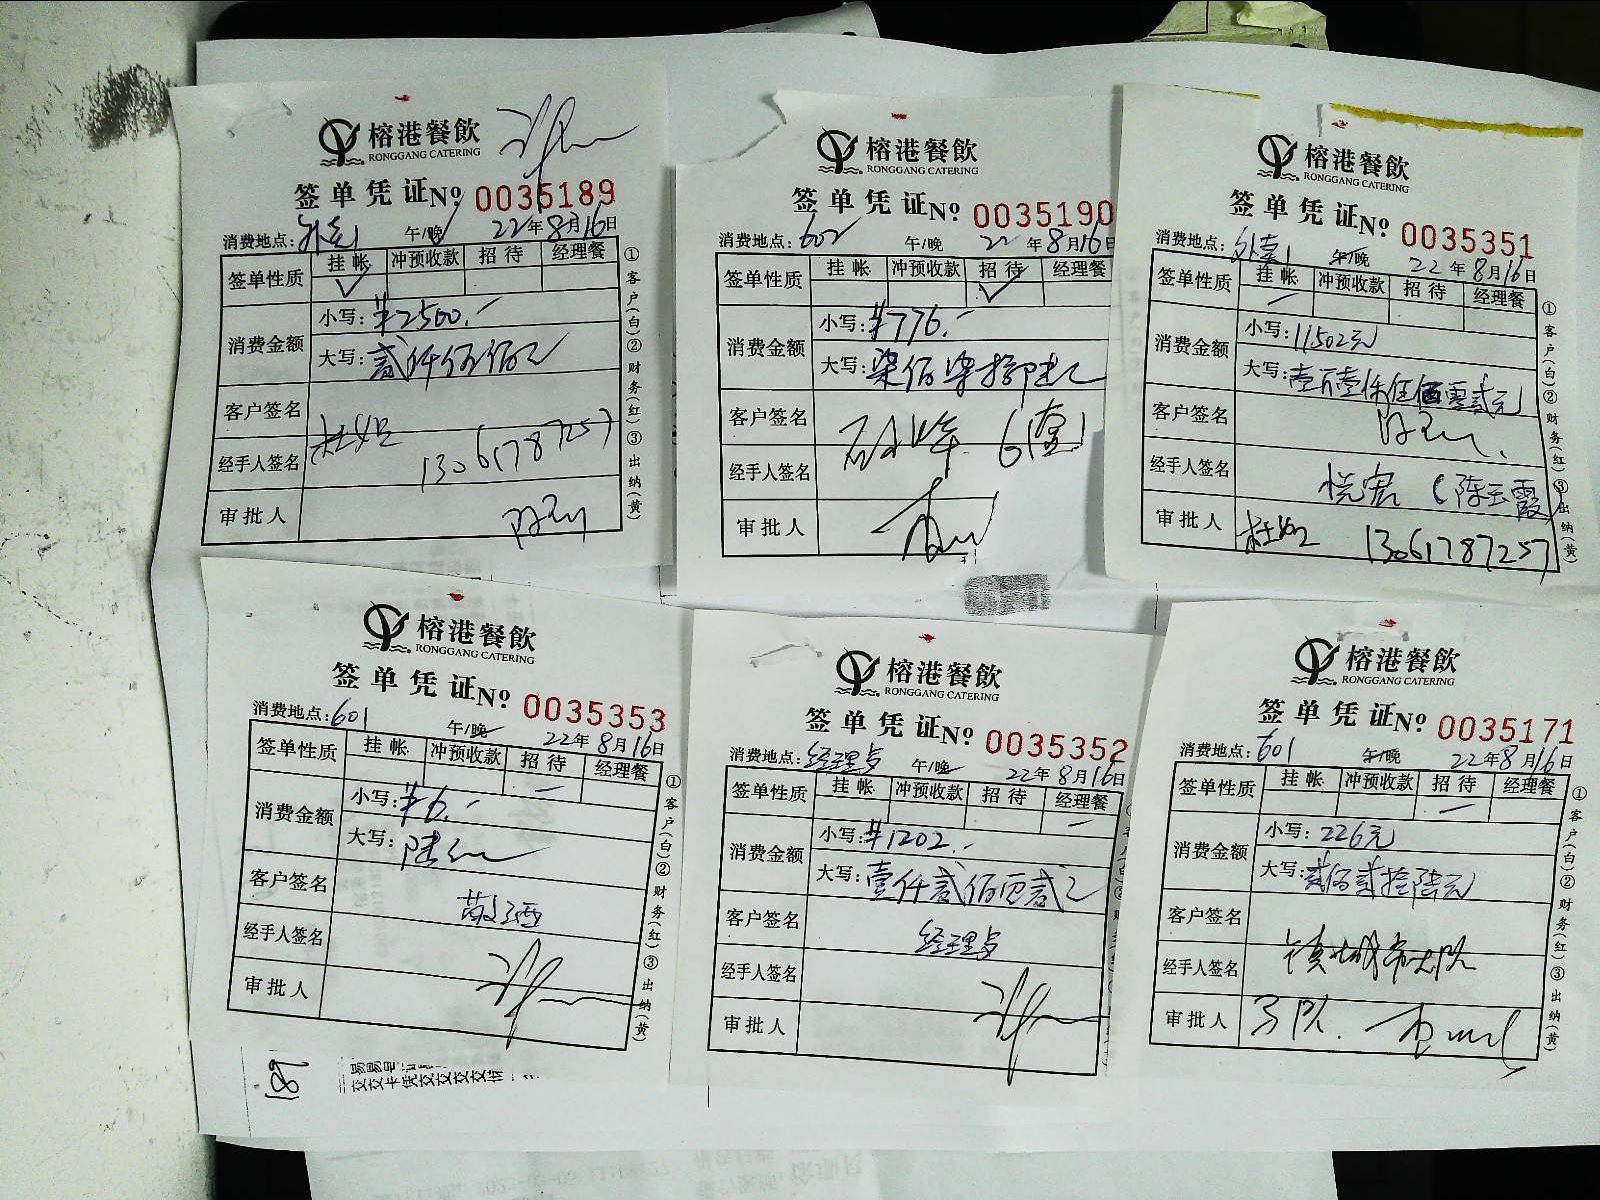 榕港餐飲
RONGGANG CATERING
签单凭证№ 0035189
消费地点: 午/晚 22年8月16日
签单性质 挂帐 冲预收款 招待 经理餐
✓
消费金额
小写:¥2500.-
大写:贰仟伍佰元
客户签名
经手人签名 13061787257
审批人
①客户(白)②财务(红)③出纳(黄)
榕港餐飲
RONGGANG CATERING
签单凭证№ 0035190
消费地点:602 午/晚 22年8月16日
签单性质 挂帐 冲预收款 招待 经理餐
✓
消费金额
小写:¥776.-
大写:柒佰柒拾陆元
客户签名
经手人签名
审批人
榕港餐飲
RONGGANG CATERING
签单凭证№ 0035351
消费地点: 午/晚 22年8月16日
签单性质 挂帐 冲预收款 招待 经理餐
消费金额
小写:11502元
大写:壹万壹仟伍佰零贰元
客户签名
经手人签名 悦宏(陈玉霞)
审批人 13061787257
①客户(白)②财务(红)③出纳(黄)
榕港餐飲
RONGGANG CATERING
签单凭证№ 0035353
消费地点:601 午/晚 22年8月16日
签单性质 挂帐 冲预收款 招待 经理餐
消费金额
小写:¥6.-
大写:陆元
客户签名 敬酒
经手人签名
审批人
①客户(白)②财务(红)③出纳(黄)
榕港餐飲
RONGGANG CATERING
签单凭证№ 0035352
消费地点:经理桌 午/晚 22年8月16日
签单性质 挂帐 冲预收款 招待 经理餐
消费金额
小写:¥1202.-
大写:壹仟贰佰零贰元
客户签名 经理桌
经手人签名
审批人
榕港餐飲
RONGGANG CATERING
签单凭证№ 0035171
消费地点:601 午/晚 22年8月16日
签单性质 挂帐 冲预收款 招待 经理餐
消费金额
小写:226元
大写:贰佰贰拾陆元
客户签名
经手人签名
审批人
①客户(白)②财务(红)③出纳(黄)
189